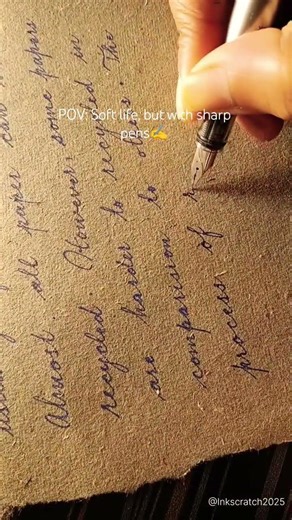 POV: Soft life, but with sharp
pens💪
Almost all paper can
recycled. However, some papers
are harder to recycled in
comparision to others. The
process of r
@Inkscratch2025